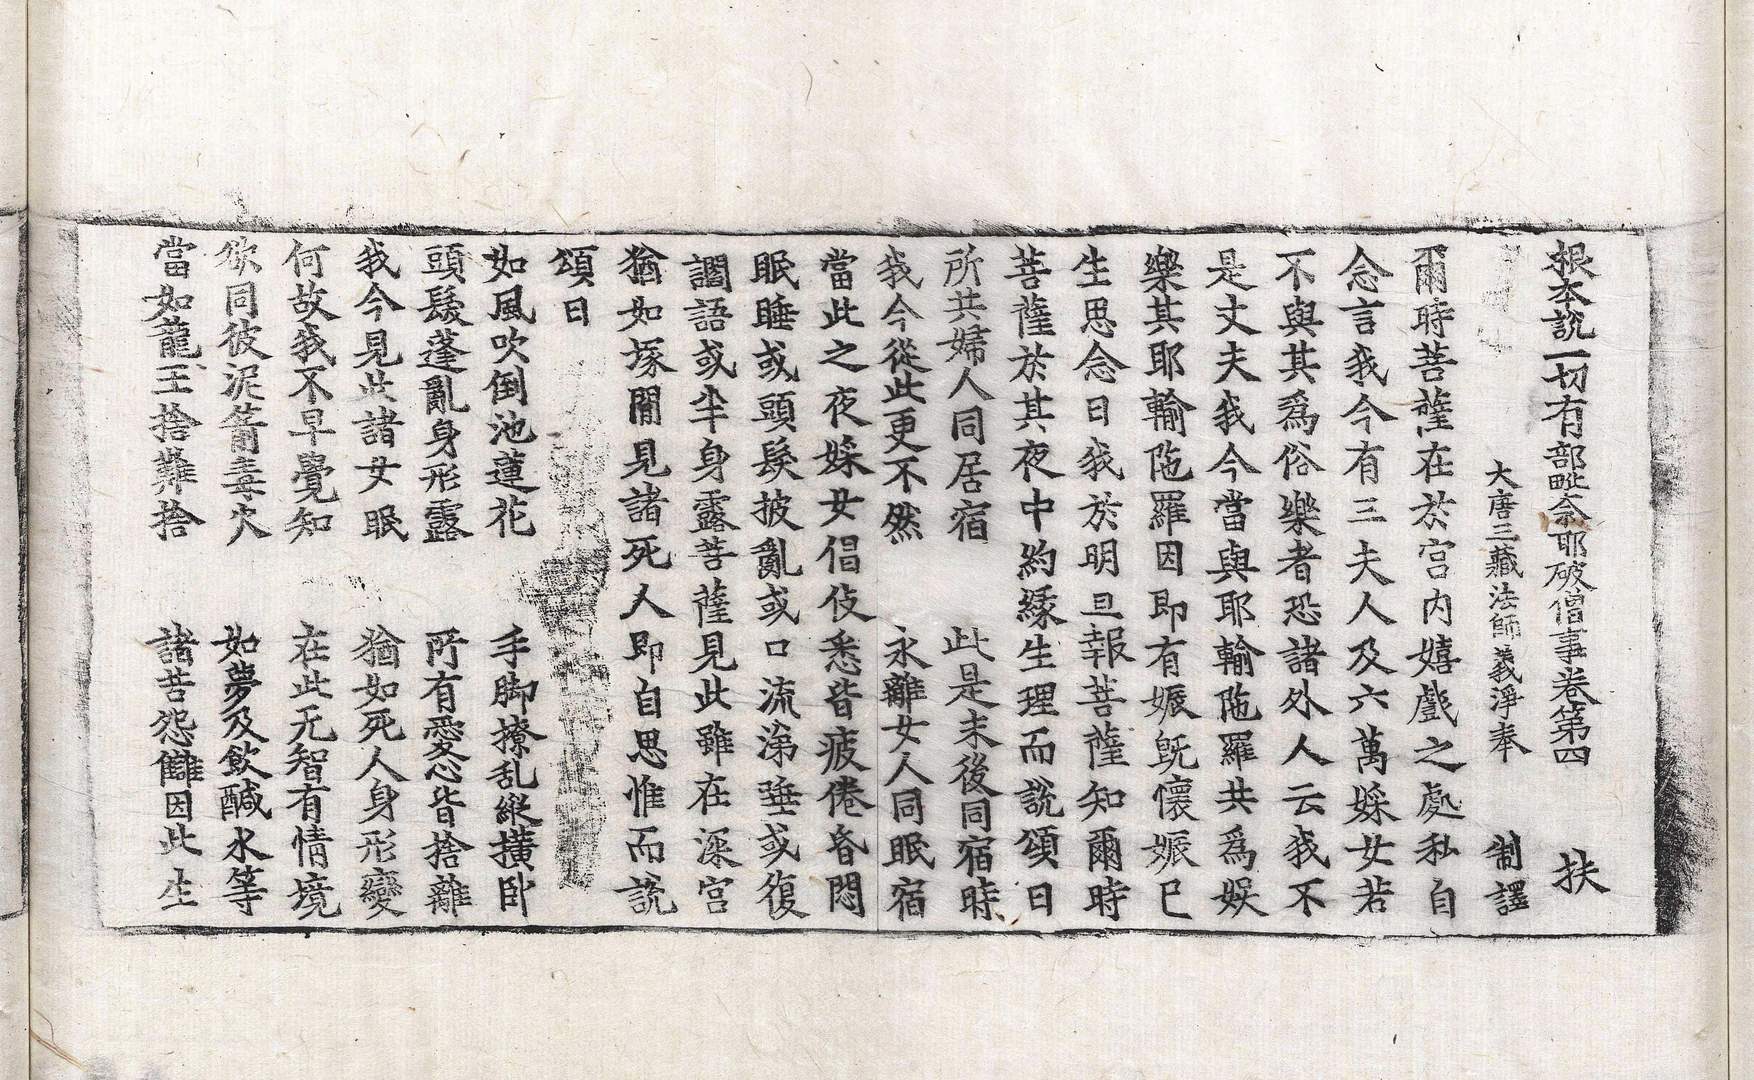 根本說一切有部毗奈耶破僧事卷第四　扶
大唐三藏法師義淨奉　制譯
爾時菩薩在於宮内嬉戲之處私自
念言我今有三夫人及六萬婇女若
不與其爲俗樂者恐諸外人云我不
是丈夫我今當與耶輸陁羅共爲娛
樂其耶輸陁羅因即有娠旣懷娠已
生思念曰我於明旦報菩薩知爾時
菩薩於其夜中約緣生理而說頌曰
所共婦人同居宿　此是末後同宿時
我今從此更不然　永離女人同眠宿
當此之夜婇女倡伎悉皆疲倦昏悶
眠睡或頭髮披亂或口流涕唾或復
讇語或半身露菩薩見此雖在深宮
猶如塚閒見諸死人即自思惟而說
頌曰
如風吹倒池蓮花　手脚撩乱縱橫卧
頭髮蓬亂身形露　所有愛心皆捨離
我今見此諸女眠　猶如死人身形變
何故我不早覺知　在此无智有情境
欲同彼泥箭毒火　如夢及飲醎水等
當如龍王捨難捨　諸苦怨讎因此生